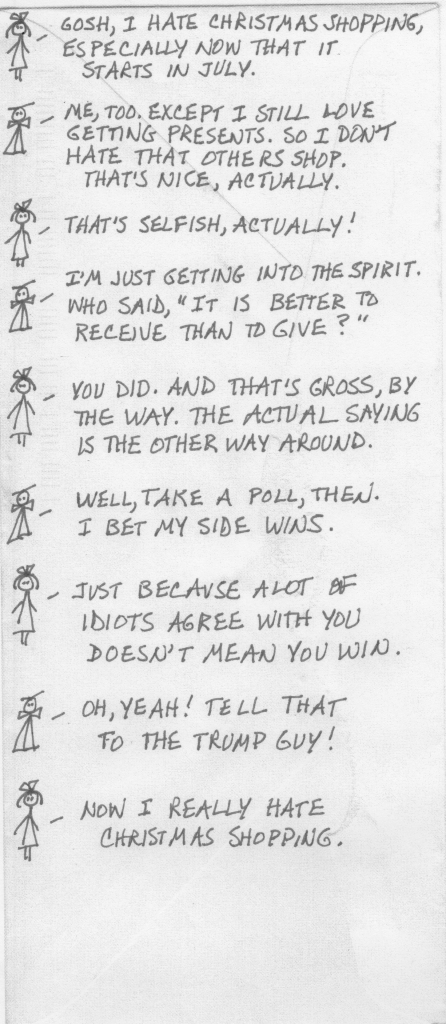 GOSH, I HATE CHRISTMAS SHOPPING,
ESPECIALLY NOW THAT IT
STARTS IN JULY.
ME, TOO. EXCEPT I STILL LOVE
GETTING PRESENTS. SO I DON'T
HATE THAT OTHERS SHOP.
THAT'S NICE, ACTUALLY.
THAT'S SELFISH, ACTUALLY!
I'M JUST GETTING INTO THE SPIRIT.
WHO SAID, "IT IS BETTER TO
RECEIVE THAN TO GIVE?"
YOU DID. AND THAT'S GROSS, BY
THE WAY. THE ACTUAL SAYING
IS THE OTHER WAY AROUND.
WELL, TAKE A POLL, THEN.
I BET MY SIDE WINS.
JUST BECAUSE A LOT OF
IDIOTS AGREE WITH YOU
DOESN'T MEAN YOU WIN.
OH, YEAH! TELL THAT
TO THE TRUMP GUY!
NOW I REALLY HATE
CHRISTMAS SHOPPING.